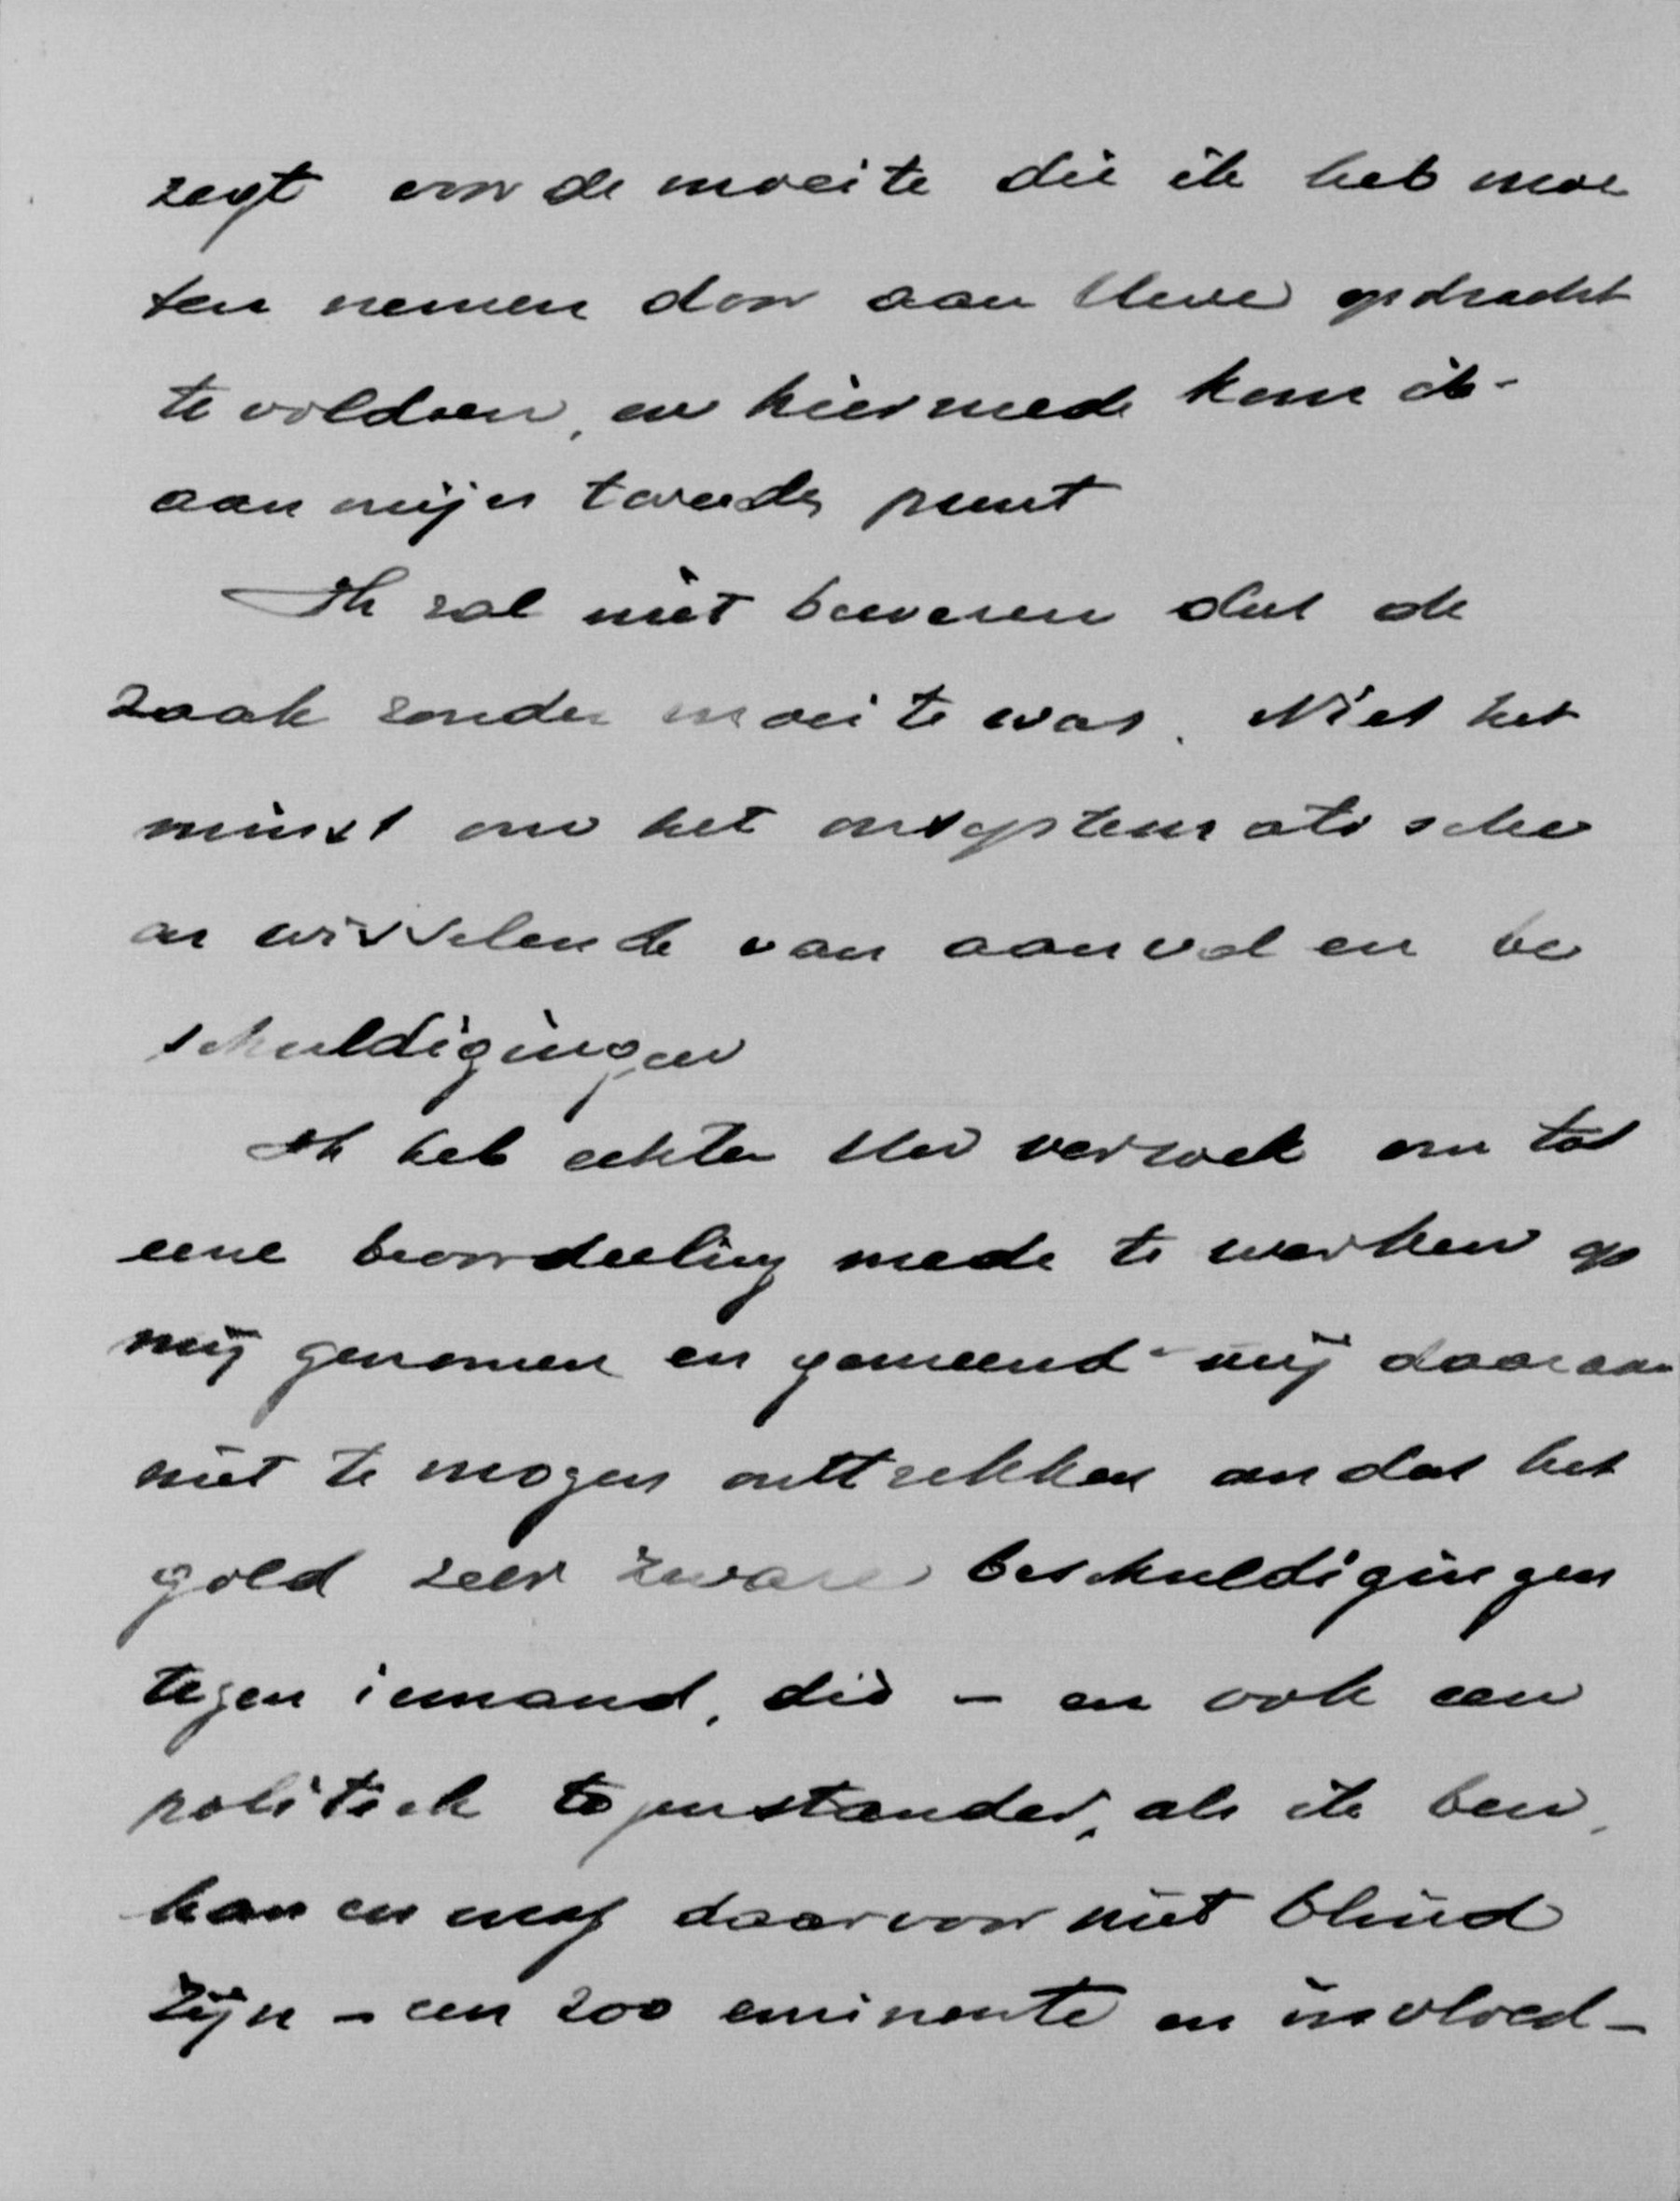 zegt voor de moeite die ik heb moe
ten nemen door aan Uwe opdracht
te voldoen, en hiermede kom ik
aan mijn tweede punt
Ik zal niet beweren dat de
zaak zonder moeite was. Niet het
minst om het onsystematische
en wisselende van aanval en be
schuldigingen
Ik heb echter Uw verzoek om tot
eene beoordeeling mede te werken op
mij genomen en gemeend mij daaraan
niet te mogen onttrekken omdat het
gold zeer zware beschuldigingen
tegen iemand, die - en ook een
politiek tegenstander, als ik ben,
kan en mag daarvoor niet blind
zijn - een zoo eminente en invloed-